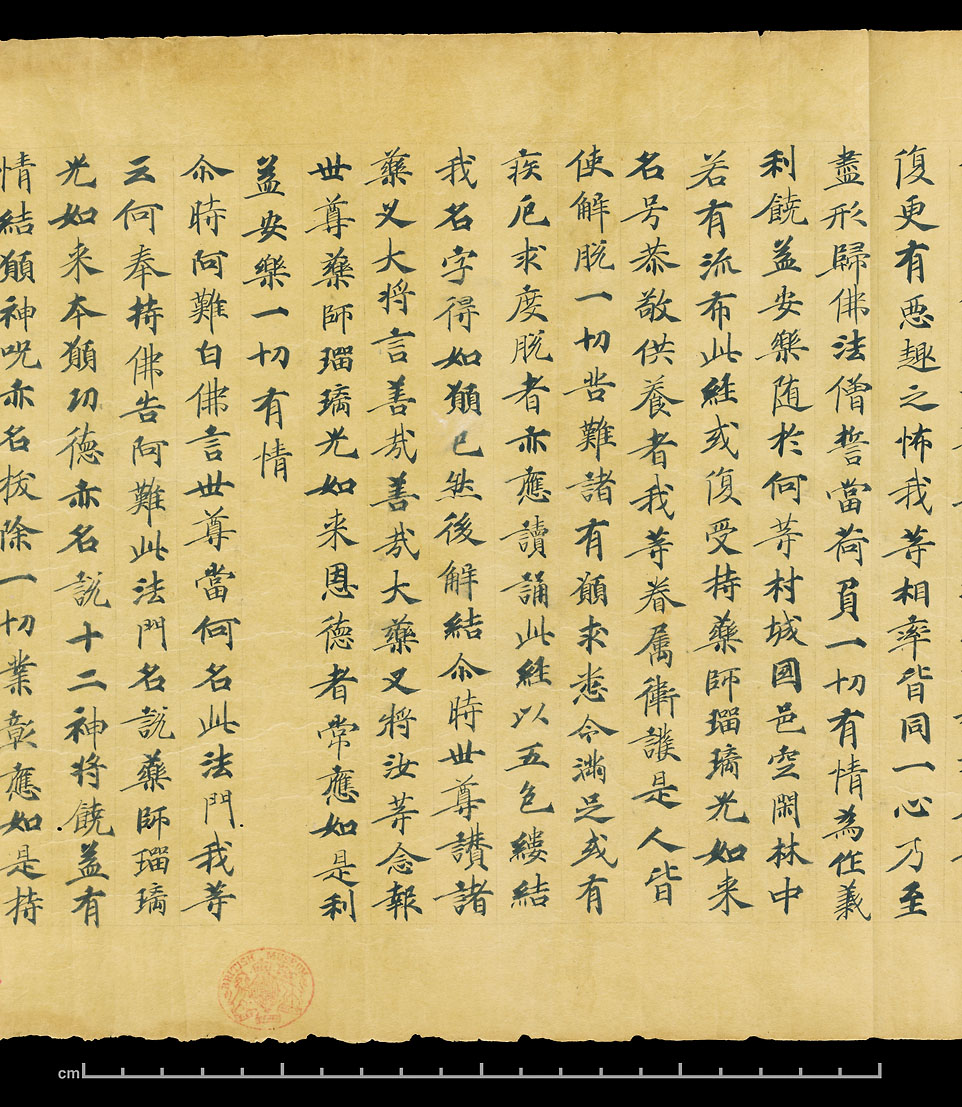 復更有惡趣之怖我等相率皆同一心乃至
盡形歸佛法僧誓當荷負一切有情為作義
利饒益安樂随於何等村城國邑空閑林中
若有流布此經或復受持藥師瑠璃光如来
名号恭敬供養者我等眷属衛護是人皆
使解脫一切苦難諸有願求悉令滿足或有
疾厄求度脫者亦應讀誦此經以五色縷結
我名字得如願已然後解結尒時世尊讃諸
藥叉大将言善哉善哉大藥叉将汝等念報
世尊藥師瑠璃光如来恩德者常應如是利
益安樂一切有情
尒時阿難白佛言世尊當何名此法門我等
云何奉持佛告阿難此法門名說藥師瑠璃
光如来本願功德亦名說十二神将饒益有
情結願神呪亦名拔除一切業彰應如是持
BRITISH MUSEUM
cm